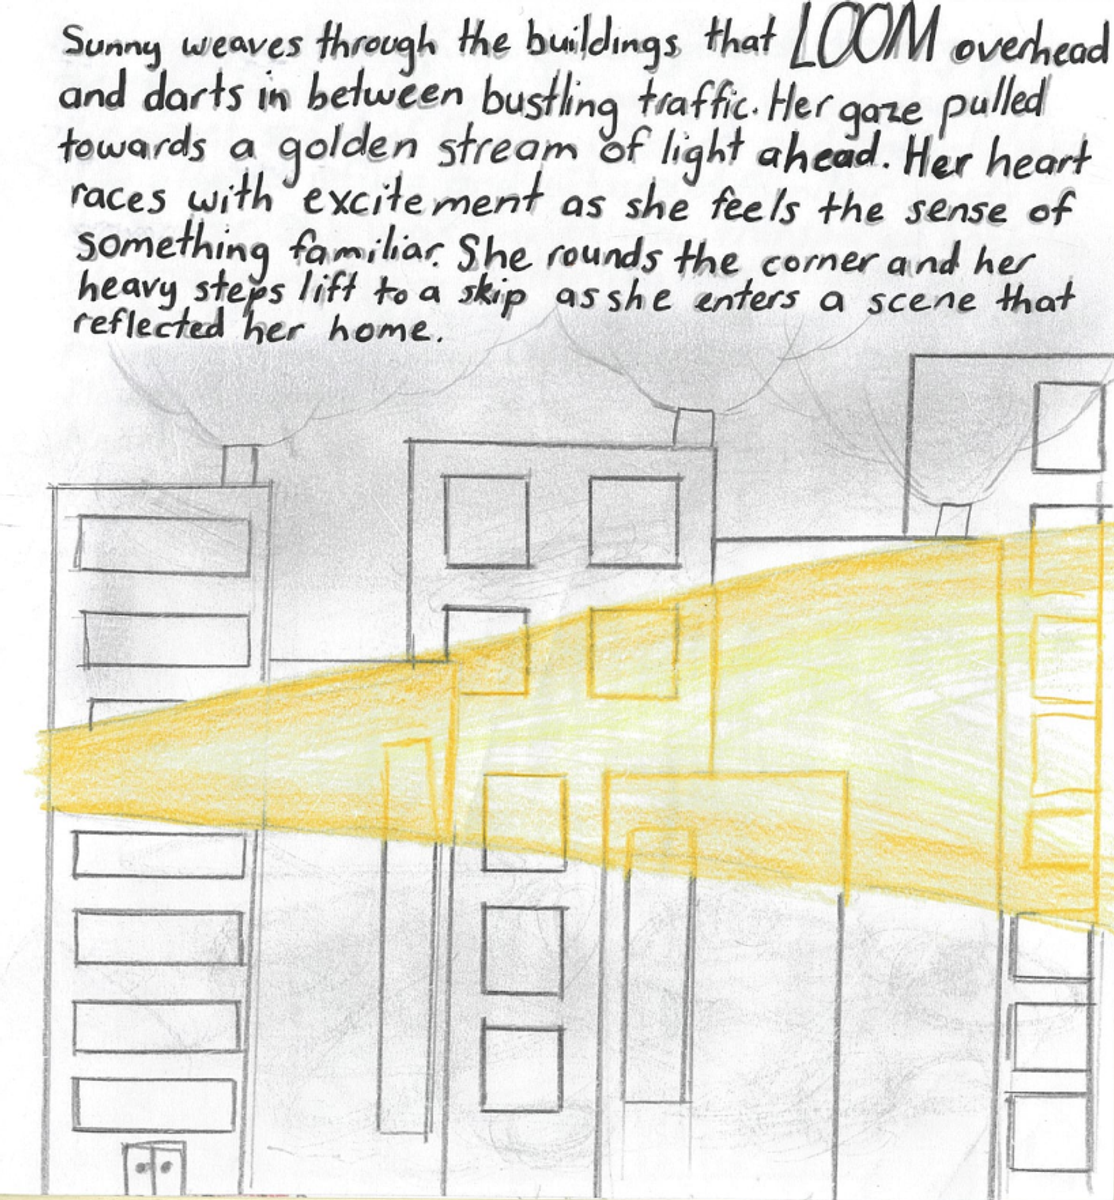 Sunny weaves through the buildings that LOOM overhead
and darts in between bustling traffic. Her gaze pulled
towards a golden stream of light ahead. Her heart
races with excitement as she feels the sense of
something familiar. She rounds the corner and her
heavy steps lift to a skip as she enters a scene that
reflected her home.